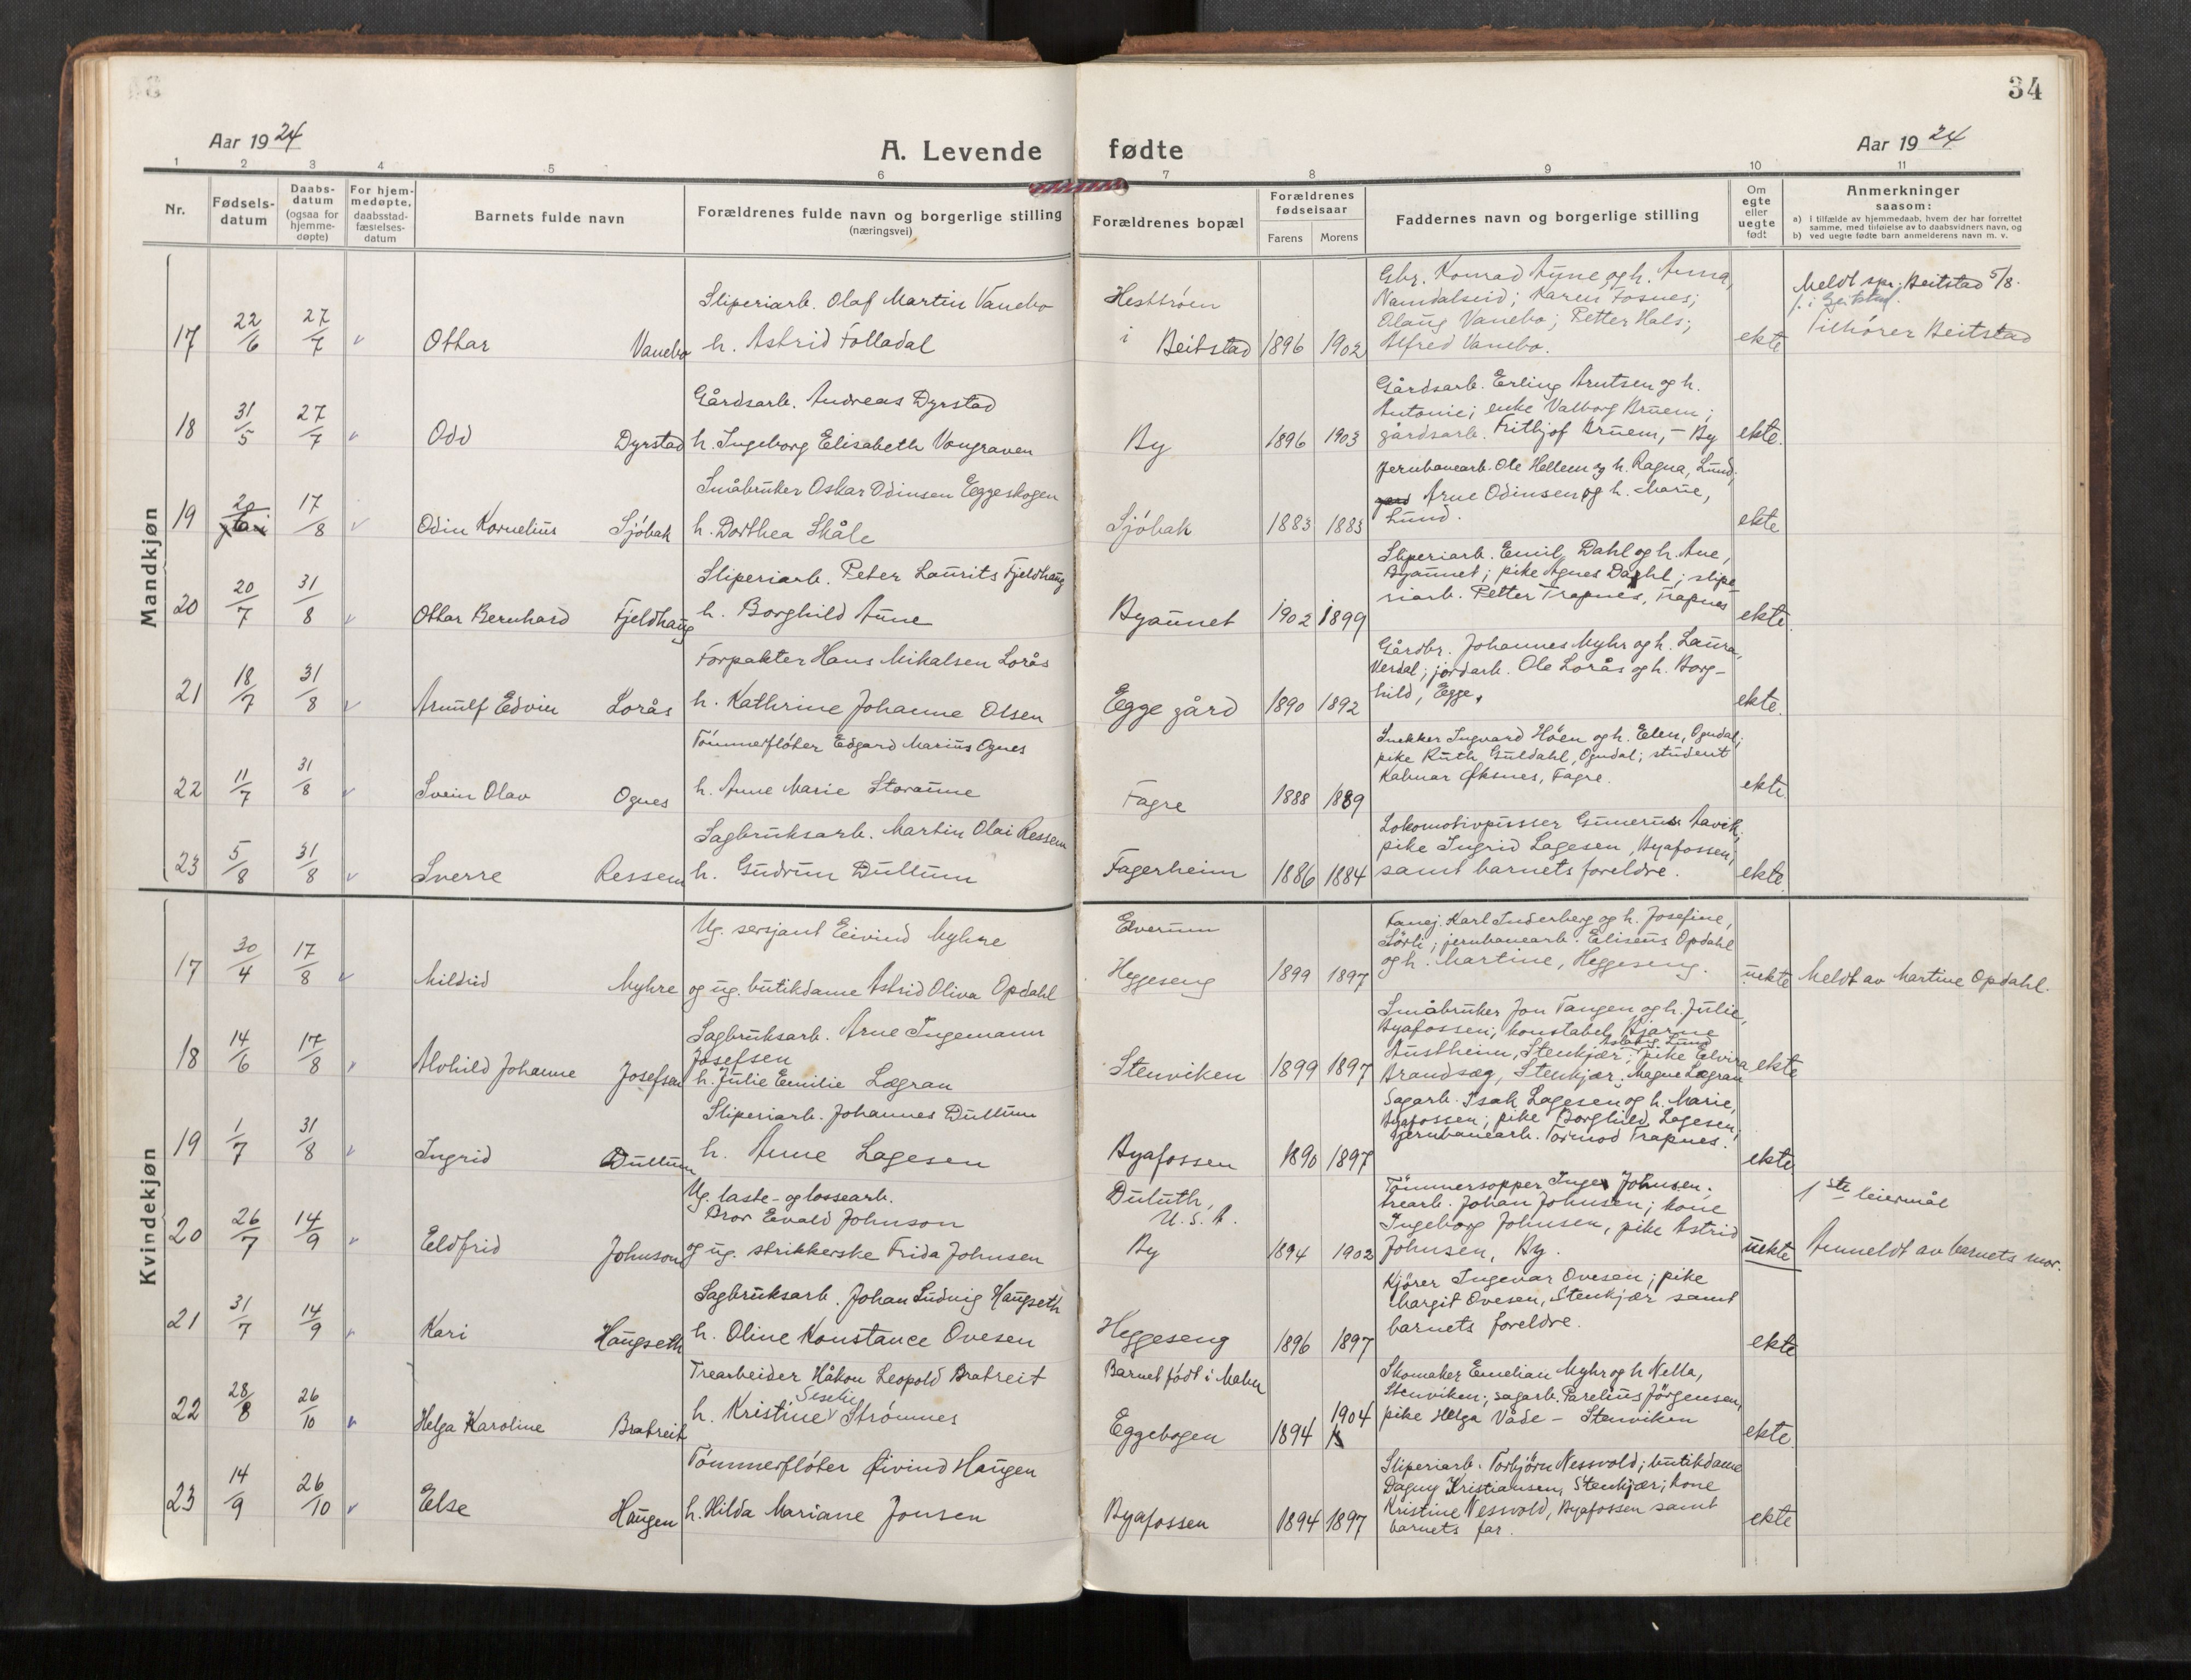 34
Aar 1924
A. Levende fødte
Aar 1924
1 2 3 4 5 6 7 8 9 10 11
Nr.
Fødsels-datum
Daabs-datum (ogsaa for hjemme-døpte)
For hjem-medøpte, daabsstad-fæstelses-datum
Barnets fulde navn
Forældrenes fulde navn og borgerlige stilling (næringsvei)
Forældrenes bopæl
Forældrenes fødselsaar
Farens Morens
Faddernes navn og borgerlige stilling
Om egte eller uegte født
Anmerkninger saasom:
a) i tilfælde av hjemmedaab, hvem der har forrettet samme, med tilføielse av to daabsvidners navn, og
b) ved uegte fødte barn anmelderens navn m. v.
Mandkjøn
Sliperiarb. Olaf Martin Vanebo
Hestbróen
Gbr. Konrad Aune og h. Anna,
Namdalseid; Karen Fosnes;
Olaug Vanebo; Petter Hals;
Alfred Vanebo.
Meldt spr. Beitstad 5/8.
f. i Beitstad
Tilhører Beitstad
17 22/6 27/7 v Ottar Vanebo h. Astrid Folladal i Beitstad 1896 1902 ekte
Gårdsarb. Andreas Dyrstad
Gårdsarb. Erling Arntsen og h.
Antonie; enke Valborg Bruem;
gårdsarb. Fritbjof Bruem, - By
18 31/5 27/7 v Odd Dyrstad h. Ingeborg Elisabeth Vongraven By 1896 1903 ekte.
Småbruker Oskar Odinsen Eggeskogen
Jernbanearb. Ole Hellem og h. Ragna, Lund;
Arne Odinsen og h. Marie,
Lund.
19 20/6 17/8 v Odin Kornelius Sjöbak h. Dorthea Skåle Sjöbak 1883 1883 ekte
Sliperiarb. Peter Laurits Fjeldhaug
Sliperiarb. Emil Dahl og h. Ane,
Byaunet; pike Agnes Dahl; slipe-
riarb. Petter Trapnes, Trapnes
20 20/7 31/8 v Ottar Bernhard Fjeldhaug h. Borghild Aune Byaunet 1902 1899 ekte.
Forpakter Hans Mikalsen Lorås
Gårdbr. Johannes Myhr og h. Laura,
Verdal; jordarb. Ole Lorås og h. Borg-
hild, Egge.
21 18/7 31/8 v Arnulf Edvin Lorås h. Kathrine Johanne Olsen Egge gård 1890 1892 ekte.
Tömmerflöter Edgard Marius Ognes
Snekker Ingvard Höen og h. Elen, Ogndal;
pike Ruth Guldahl, Ogndal; student
Kalmar Øksnes, Fagre.
22 11/7 31/8 v Svein Olav Ognes h. Anne Marie Storaune Fagre 1888 1889 ekte.
Sagbruksarb. Martin Olai Ressem
Lokomotivpusser Gunerius Aavik,
pike Ingrid Lagesen, Byafossen;
samt barnets foreldre.
23 5/8 31/8 v Sverre Ressem h. Gudrun Dullum Fagerheim 1886 1884 ekte
Kvindekjøn
Ug. sersjant Eivind Myhre
Elverum
Fanej. Karl Inderberg og h. Josefine,
Sörli; jernbanearb. Eliseus Opdahl
og h. Martine, Heggeseng.
17 30/4 17/8 v Mildrid Myhre og ug. butikdame Astrid Oliva Opdahl Heggeseng 1899 1897 uekte Meldt av Martine Opdahl.
Sagbruksarb. Arne Ingemann
Josefsen
Småbruker Jon Tangen og h. Julie,
Byafossen; konstabel Bjarne
Austheim, Stenkjær; pike Elvira
Brandsæg, Stenkjær; Magne Lægran
18 14/6 17/8 v Alvhild Johanne Josefsen h. Julie Emilie Lægran Stenviken 1899 1897 ekte
Sliperiarb. Johannes Dullum
Sagarb. Isak Lagesen og h. Marie,
Byafossen; pike Borghild Lagesen,
jernbanearb. Tormod Trapnes.
19 1/7 31/8 v Ingrid Dullum h. Anne Lagesen Byafossen 1890 1897 ekte
Ug. laste- og lossearb.
Bror Evald Johnson
Duluth,
U. S. A.
Tömmersopper Inge Johnsen;
trearb. Johan Johnsen; kone
Ingeborg Johnsen, pike Astrid
Johnsen, By.
1ste leiermål
20 26/7 14/9 v Eldfrid Johnson og ug. strikkerske Frida Johnsen By 1894 1902 uekte Anmeldt av barnets mor.
Sagbruksarb. Johan Ludvig Haugseth
Kjörer Ingevar Ovesen; pike
Margit Ovesen, Stenkjær samt
barnets foreldre.
21 31/7 14/9 v Kari Haugseth h. Oline Konstance Ovesen Heggeseng 1896 1897 ekte
Trearbeider Håkon Leopold Bratreit
Barnet født i Malm
Skomaker Emelian Myhr og h Nella,
Stenviken; sagarb. Parelius Jörgensen,
pike Helga Våde - Stenviken
22 28/8 26/10 v Helga Karoline Bratreit h. Kristine Strömnes Eggebogen 1894 1904 ekte.
Tömmerflöter Øivind Haugen
Sliperiarb. Torbjörn Nessvold; butikdame
Dagny Kristiansen, Stenkjær; kone
Kristine Nessvold, Byafossen samt
barnets far.
23 14/9 26/10 v Else Haugen h. Hilda Mariane Jonsen Byafossen 1894 1897 ekte